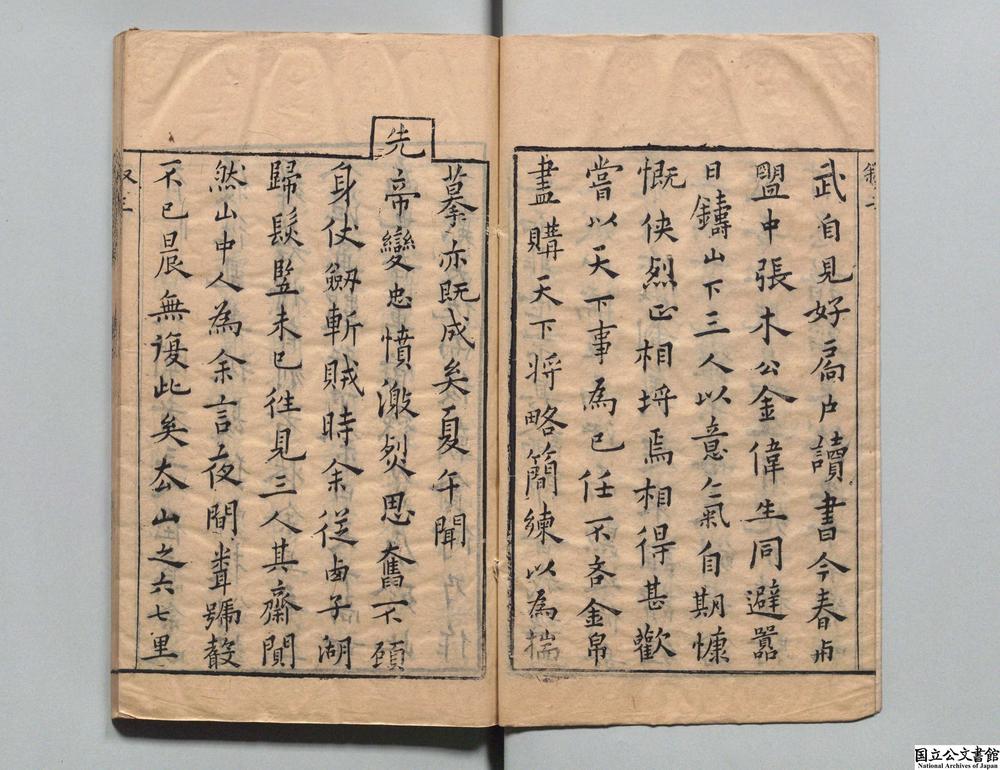 武自見好扃戶讀書今春与
盟中張木公金偉生同避囂
日鑄山下三人以意氣自期慷
慨俠烈正相埒焉相得甚歡
嘗以天下事為己任不吝金帛
盡購天下將略簡練以為揣
摹亦既成矣夏午聞
先
帝變忠憤激烈思奮不顧
身仗劔斬賊時余從鹵子湖
歸鬚竪未已徃見三人其齋閴
然山中人為余言夜間聲號聲
不已晨無復此矣厺山之六七里
叙二
叙三
国立公文書館
National Archives of Japan